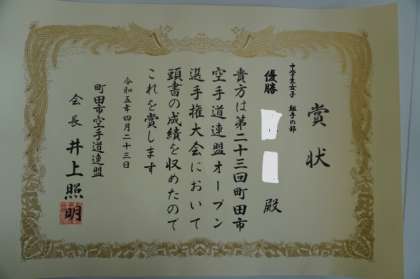 賞状
中学生女子 組手の部
優勝
殿
貴方は第二十三回町田市
空手道連盟オープン
選手権大会において
頭書の成績を収めたので
これを賞します
令和五年四月二十三日
町田市空手道連盟
会長 井上照明